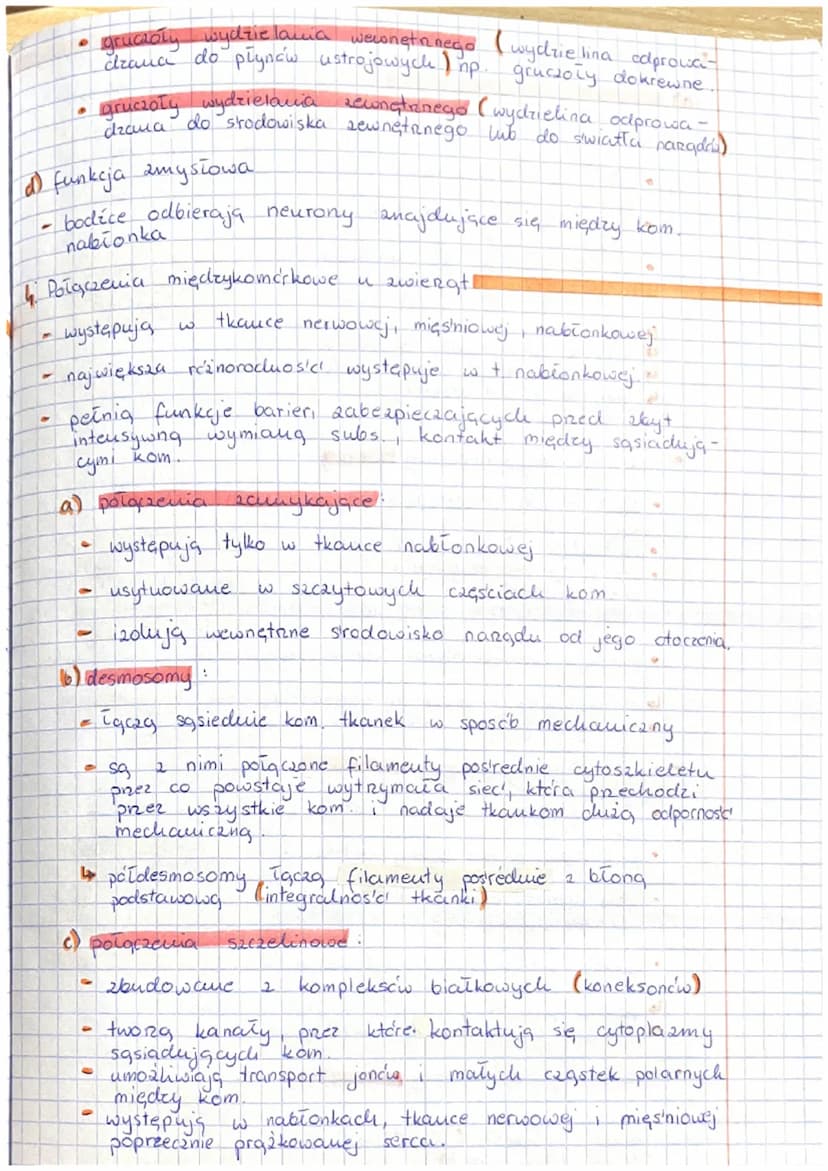 • gruczoły wydzielania wewnętrznego (wydzielina odprowa-
dzana do płynów ustrojowych) np. gruczoły dokrewne.
• gruczoły wydzielania zewnętrznego (wydzielina odprowa-
dzana do środowiska zewnętrznego lub do światła narządu)
d) funkcja zmysłowa
- bodźce odbierają neurony znajdujące się między kom.
nabłonka
4. Połączenia międzykomórkowe u zwierząt
- występują w tkance nerwowej, mięśniowej, nabłonkowej
- największa różnorodność występuje w t. nabłonkowej.
- pełnią funkcje barier, zabezpieczających przed zbyt
intensywną wymianą subs., kontakt między sąsiadują-
cymi kom.
a) połączenia zamykające:
- występują tylko w tkance nabłonkowej
- usytuowane w szczytowych częściach kom.
- izolują wewnętrzne środowisko narządu od jego otoczenia.
b) desmosomy:
- łączą sąsiednie kom. tkanek w sposób mechaniczny
- są z nimi połączone filamenty pośrednie cytoszkieletu
przez co powstaje wytrzymała sieć, która przechodzi
przez wszystkie kom. i nadaje tkankom dużą odporność
mechaniczną.
↳ półdesmosomy łączą filamenty pośrednie z błoną
podstawową (integralność tkanki)
c) połączenia szczelinowe:
- zbudowane z kompleksów białkowych (koneksonów)
- tworzą kanały, przez które kontaktują się cytoplazmy
sąsiadujących kom.
- umożliwiają transport jonów i małych cząstek polarnych
między kom.
- występują w nabłonkach, tkance nerwowej i mięśniowej
poprzecznie prążkowanej serca.